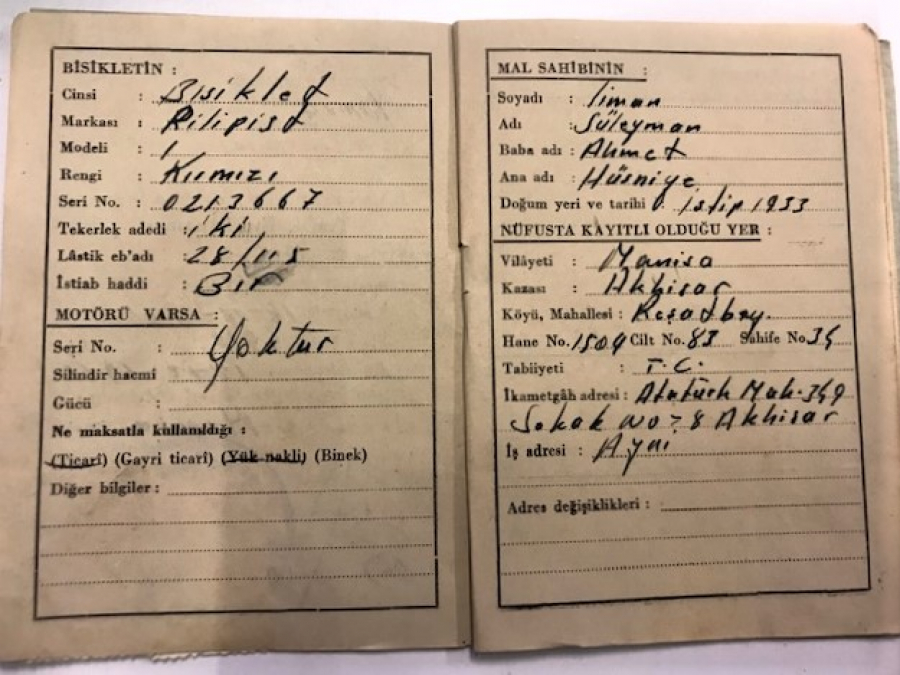 BİSİKLETİN :
Cinsi : Bisikled
Markası : Pilipisd
Modeli : 1
Rengi : Kırmızı
Seri No. : 0213667
Tekerlek adedi : iki
Lâstik eb'adı : 28/115
İstiab haddi : Bir
MOTÖRÜ VARSA :
Seri No. : Yoktur
Silindir hacmi
Gücü :
Ne maksatla kullanıldığı :
(Ticarî) (Gayri ticarî) (Yük nakli) (Binek)
Diğer bilgiler :
MAL SAHİBİNİN :
Soyadı : Timan
Adı : Süleyman
Baba adı : Ahmet
Ana adı : Hüsniye
Doğum yeri ve tarihi : istip 1933
NÜFUSTA KAYITLI OLDUĞU YER :
Vilâyeti : Manisa
Kazası : Akhisar
Köyü, Mahallesi : Reşadbey
Hane No. 1504 Cilt No. 83 Sahife No 35
Tabiiyeti : T.C.
İkametgâh adresi : Atatürk Mah. 349
Sokak No : 8 Akhisar
İş adresi : Aynı
Adres değişiklikleri :